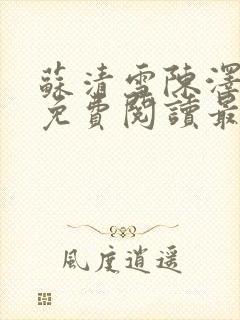 蘇清雪陳澤
免費閱讀最
風度逍遥